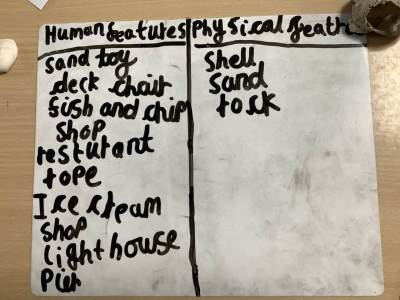 Human features
sand toy
deck chair
fish and chip
shop
resturant
rope
Ice cream
shop
lighthouse
Pier
Physical featur
shell
sand
rock